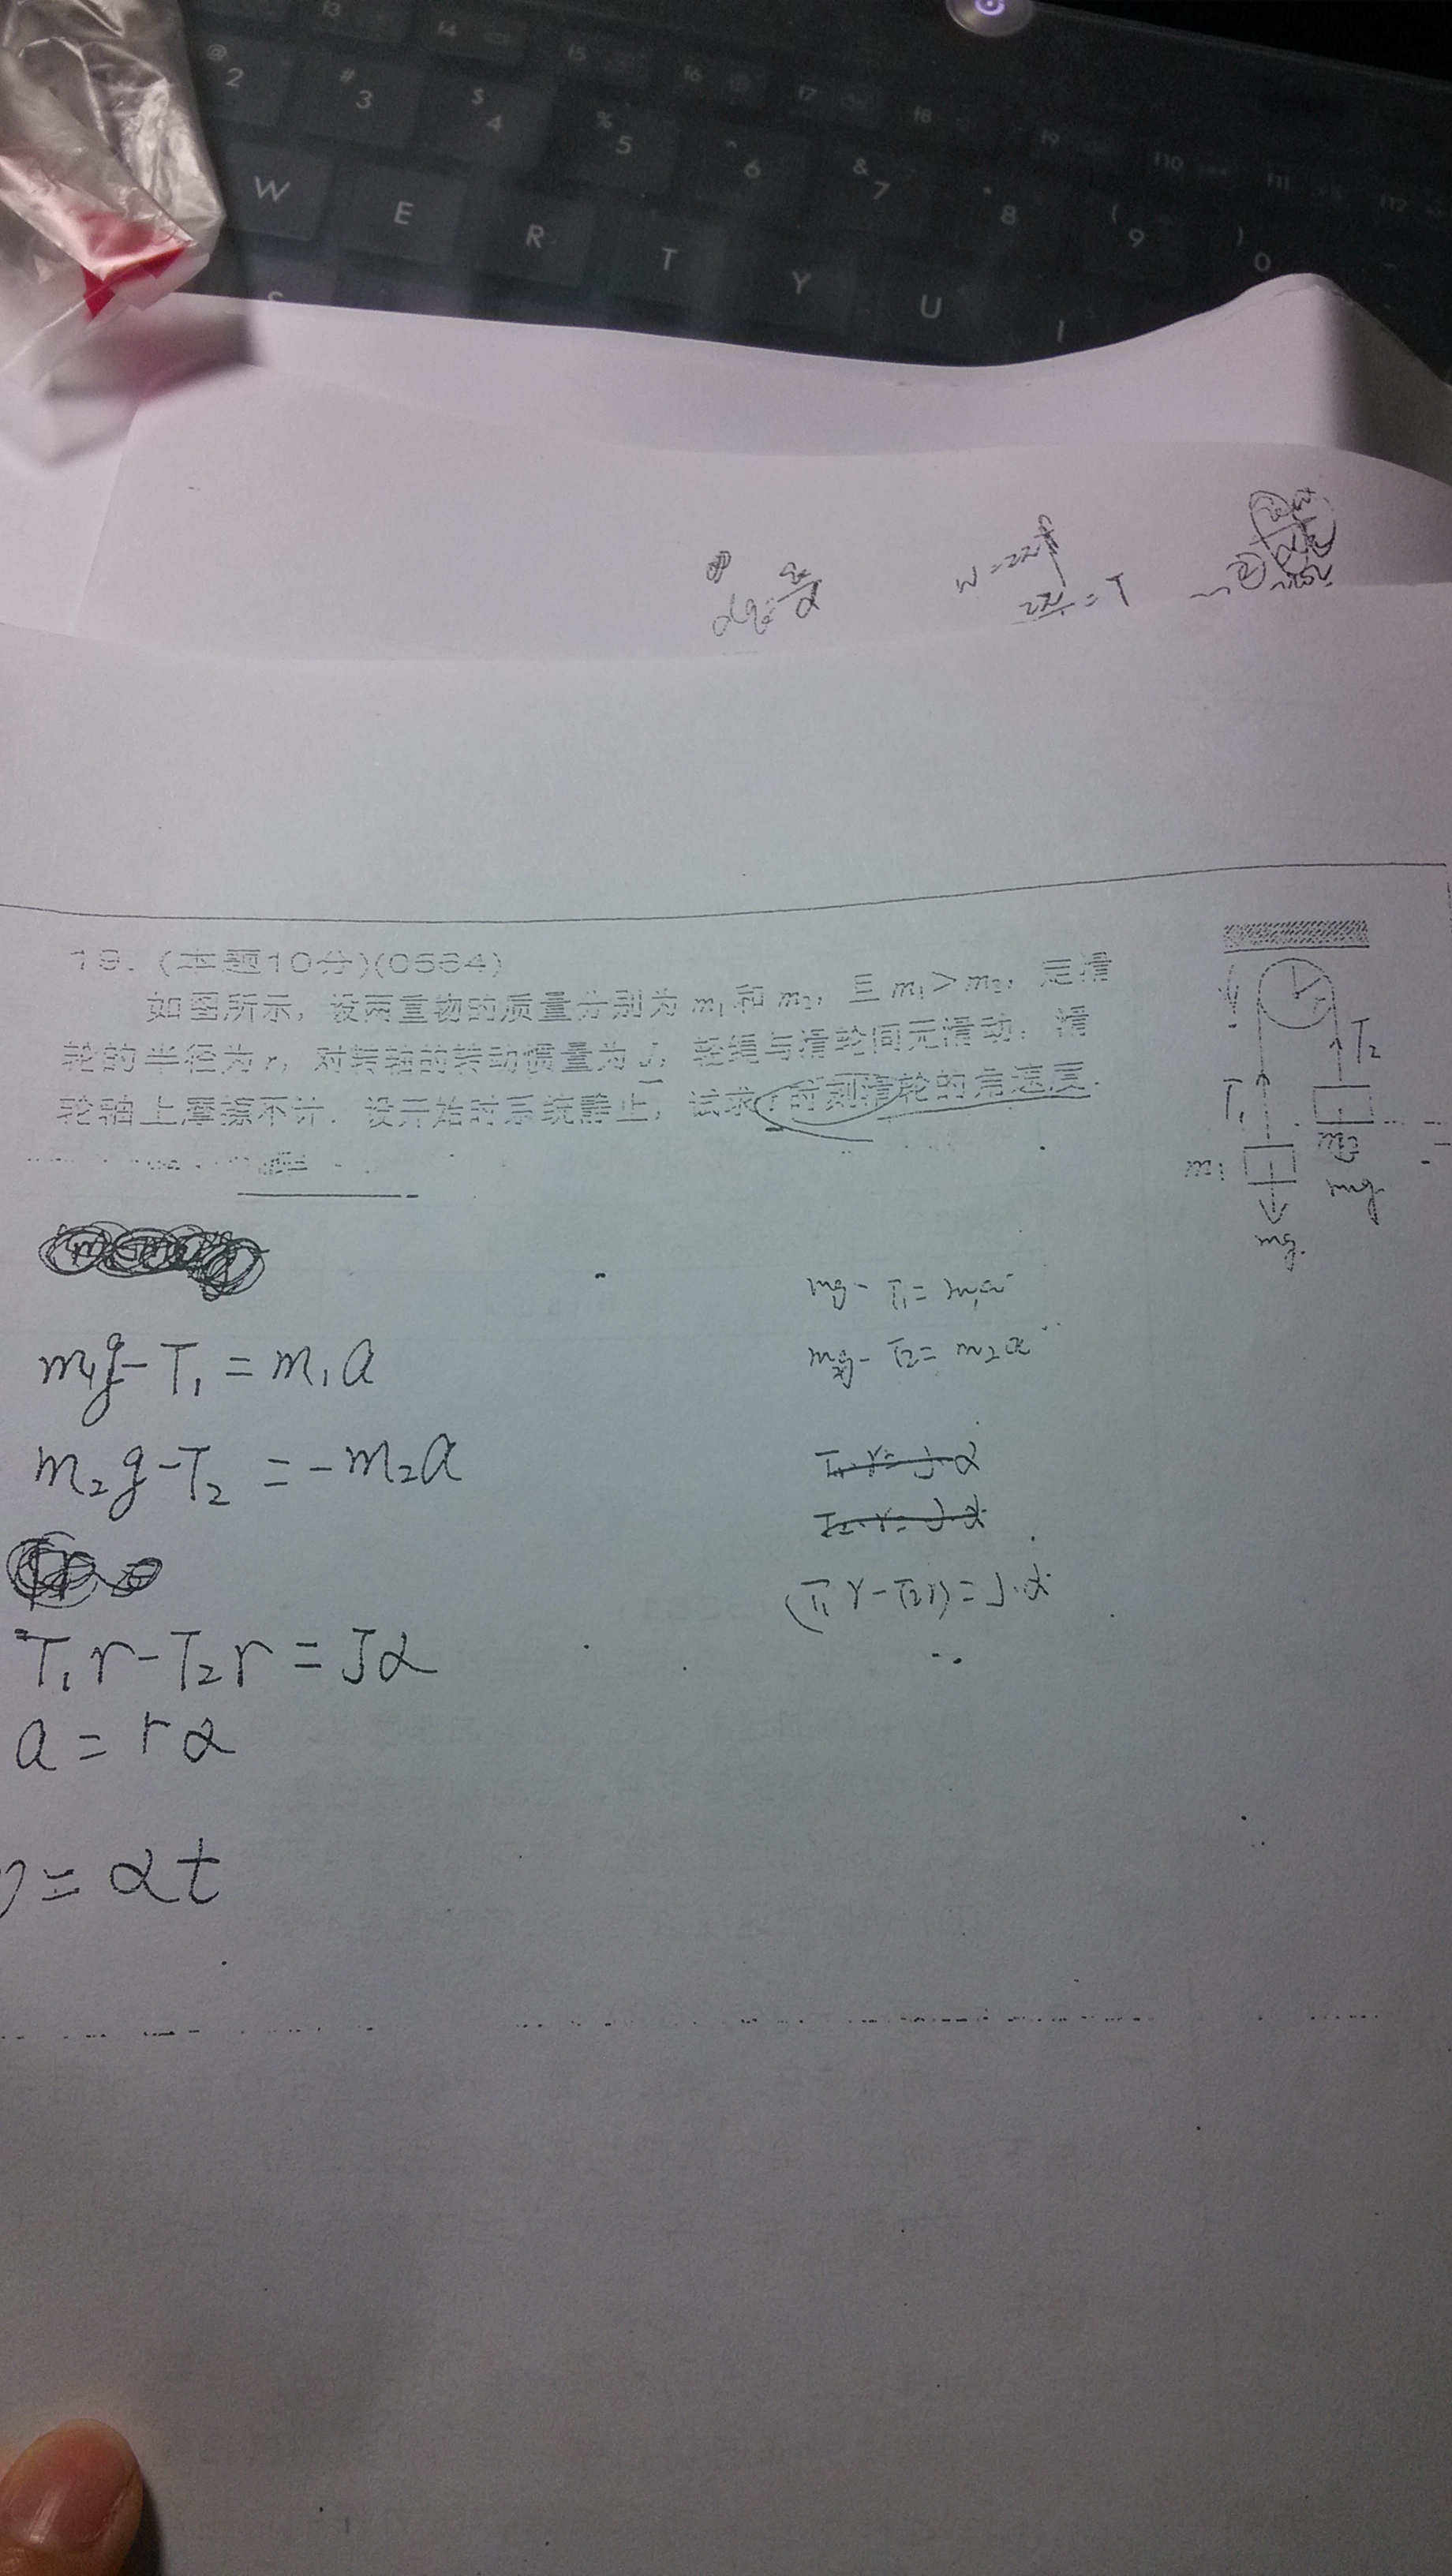 f3 f4 f5 f6 f7 f8 f9 f10 f11 f12
@ 2 # 3 $ 4 % 5 ^ 6 & 7 * 8 ( 9 ) 0
W E R T Y U I
S
2π = T
19. (本题10分)(0564)
如图所示，设两重物的质量分别为 m₁和 m₂，且 m₁＞m₂，定滑
轮的半径为 r，对转轴的转动惯量为 J，轻绳与滑轮间无滑动，滑
轮轴上摩擦不计．设开始时系统静止，试求 t 时刻滑轮的角速度．
r
T₂
T₁
m₂
m₁
mg
mg.
m₁g-T₁=m₁a
m₂g-T₂=-m₂a
T₁r-T₂r=Jα
a=rα
=αt
mg-T₁=m₁a
m₂g-T₂=m₂a
T₁·r=J·α
T₂·r=J·α
(T₁r-T₂r)=J·α